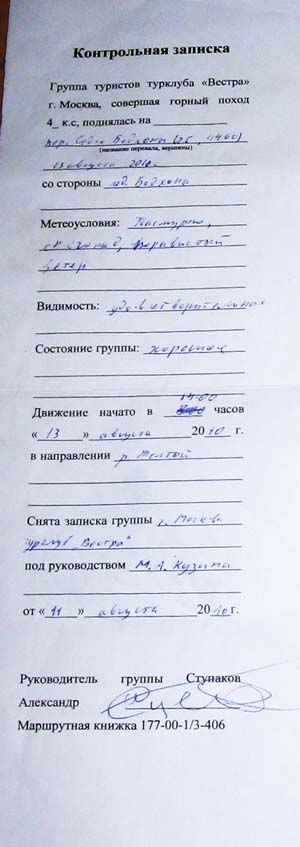 Контрольная записка
Группа туристов турклуба «Вестра»
г. Москва, совершая горный поход
4 к.с, поднялась на
пер. Бодхона (2Б,
(название перевала, вершины)
13 августа 2010г.
со стороны лд. Бодхона
Метеоусловия: Пасмурно,
порывистый
ветер
Видимость: удовлетворительная
Состояние группы: хорошее
14:00
Движение начато в часов
« 13 » августа 2010 г.
в направлении р. Желтой
Снята записка группы г. Москва
турклуб "Вестра"
под руководством М.А. Кузина
от « 11 » августа 2010г.
Руководитель группы Ступаков
Александр
Маршрутная книжка 177-00-1/3-406